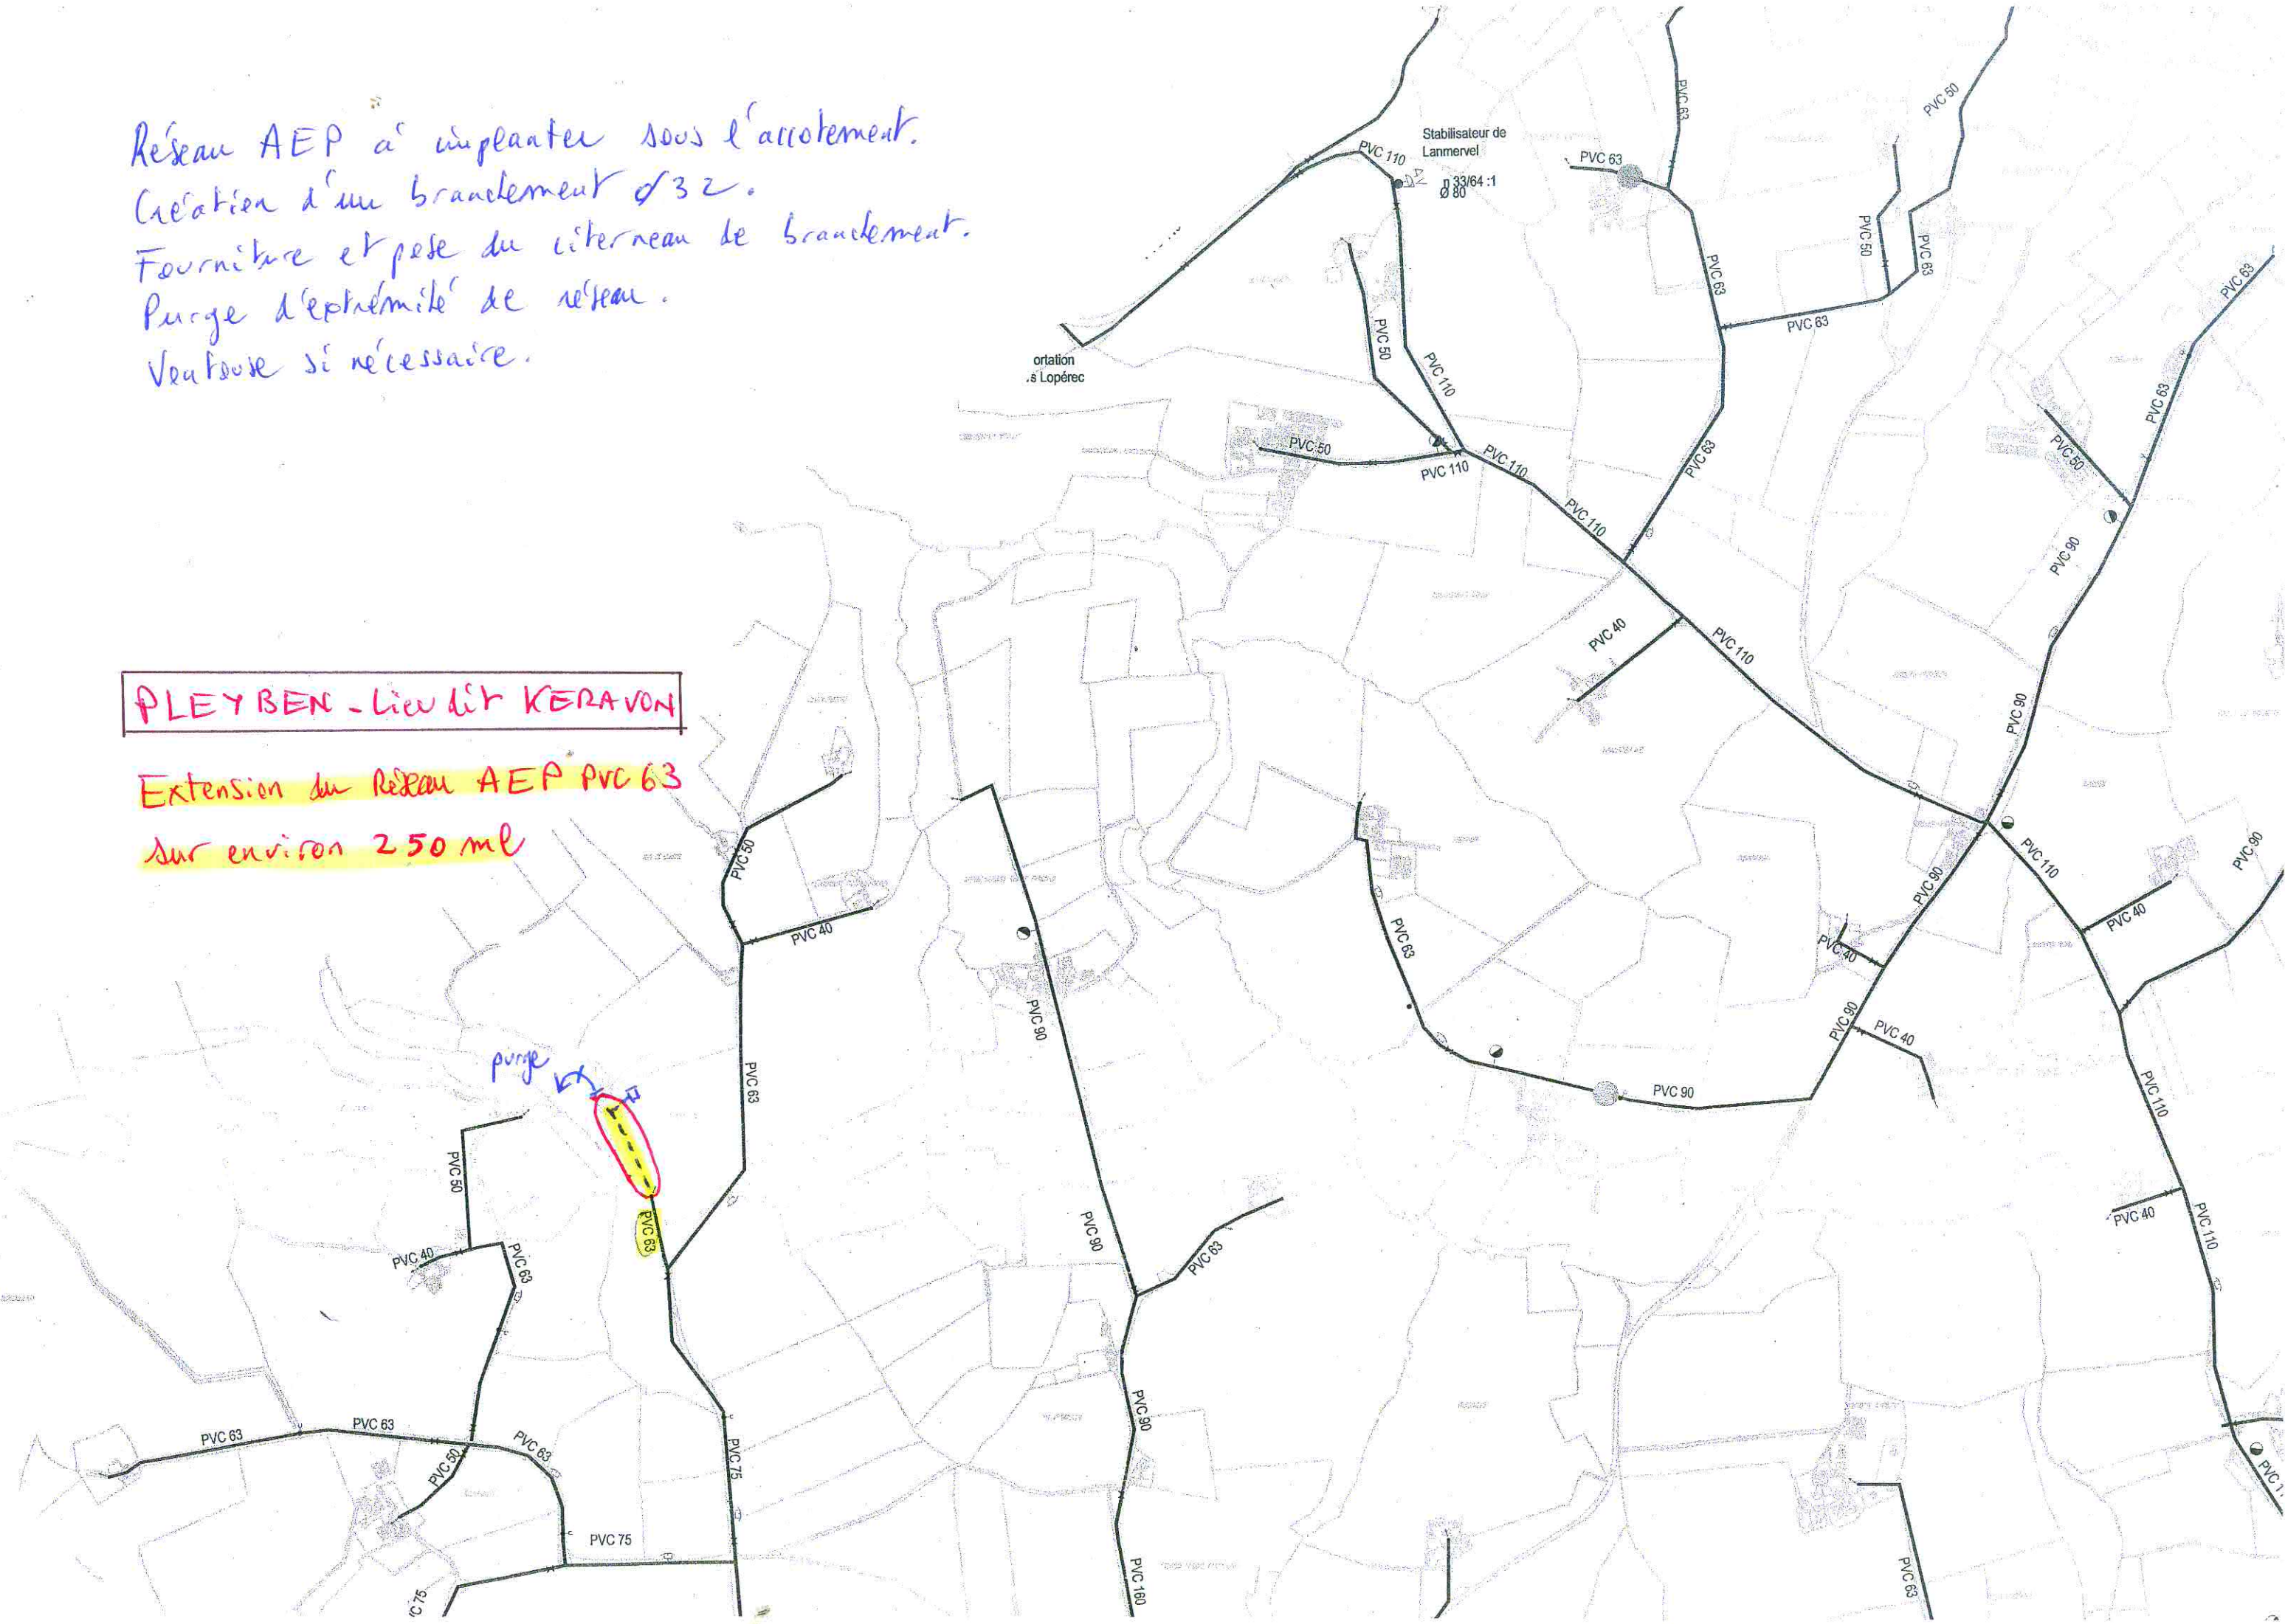 Réseau AEP à implanter sous l'accotement.
Création d'un branchement ∅32.
Fourniture et pose du citerneau de branchement.
Purge d'extrémité de réseau.
Ventouse si nécessaire.
PLEYBEN - Lieu dit KERAVON
Extension du Réseau AEP PVC 63
sur environ 250 ml
purge
Stabilisateur de
Lanmervel
33/64 :1
Ø 80
ortation
.s Lopérec
PVC 110
PVC 63
PVC 63
PVC 50
PVC 50
PVC 63
PVC 63
PVC 63
PVC 63
PVC 50
PVC 110
PVC 50
PVC 110
PVC 110
PVC 63
PVC 63
PVC 50
PVC 110
PVC 90
PVC 40
PVC 110
PVC 90
PVC 50
PVC 40
PVC 90
PVC 110
PVC 90
PVC 40
PVC 40
PVC 63
PVC 90
PVC 90
PVC 40
PVC 63
PVC 90
PVC 110
PVC 50
PVC 63
PVC 40
PVC 63
PVC 90
PVC 63
PVC 40
PVC 110
PVC 63
PVC 63
PVC 63
PVC 50
PVC 75
PVC 90
PVC 75
PVC 160
PVC 63
PVC 1
C 75